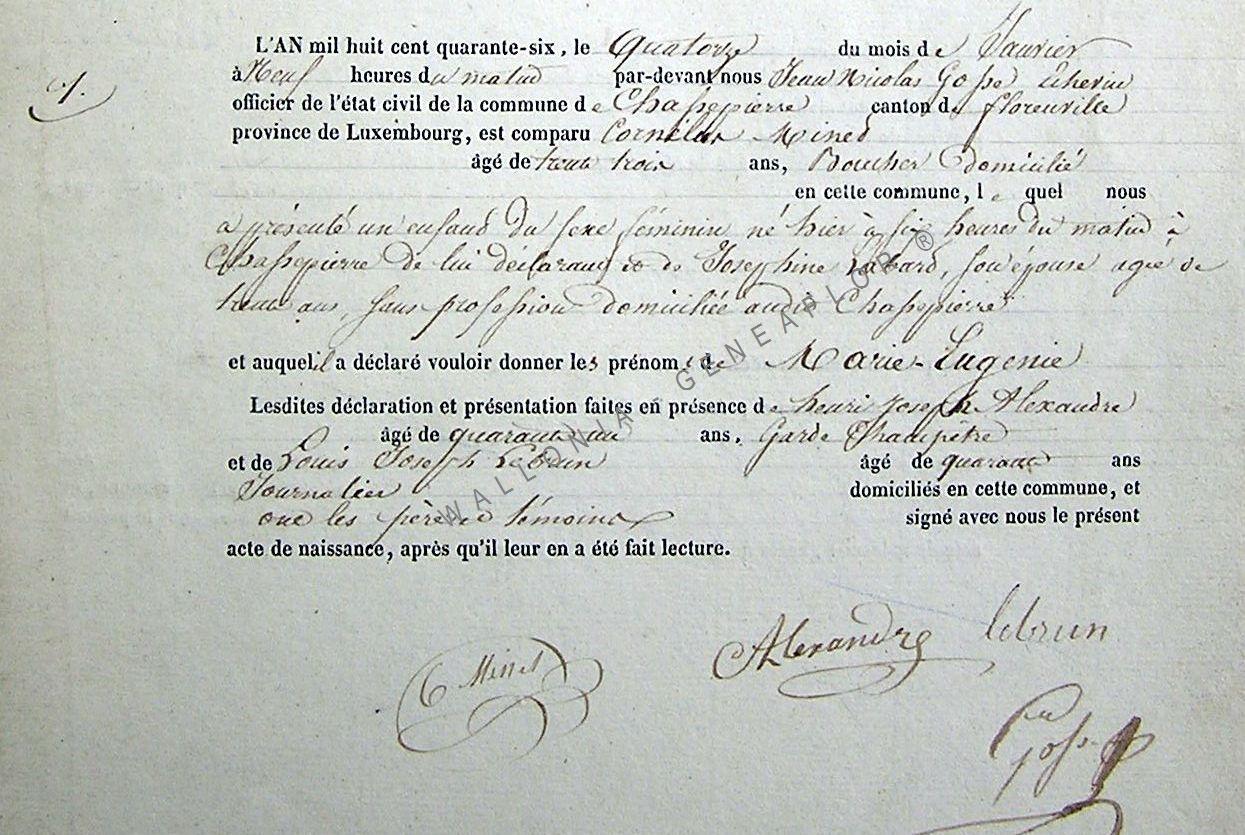 1.
L'AN mil huit cent quarante-six, le Quatorze du mois de Janvier
à Neuf heures du matin par-devant nous Jean Nicolas Gosse Echevin
officier de l'état civil de la commune de Chassepierre canton de florenville
province de Luxembourg, est comparu Corneille Minet
âgé de trente trois ans, Boucher domicilié
en cette commune, le quel nous
a présenté un enfant du sexe féminin né hier à six heures du matin à
Chassepierre de lui déclarant et de Josephine , son épouse agée de
trente ans, sans profession domiciliée audit Chassepierre
et auquel il a déclaré vouloir donner les prénoms de Marie-Eugenie
Lesdites déclaration et présentation faites en présence de henri Joseph Alexandre
âgé de quarante un ans, Garde Champêtre
et de Louis Joseph Lebrun âgé de quarante ans
Journalier domiciliés en cette commune, et
ont les père et témoins signé avec nous le présent
acte de naissance, après qu'il leur en a été fait lecture.
WALLONIA GENEAPLOR ®
Alexandre lebrun
C Minet
Gosse